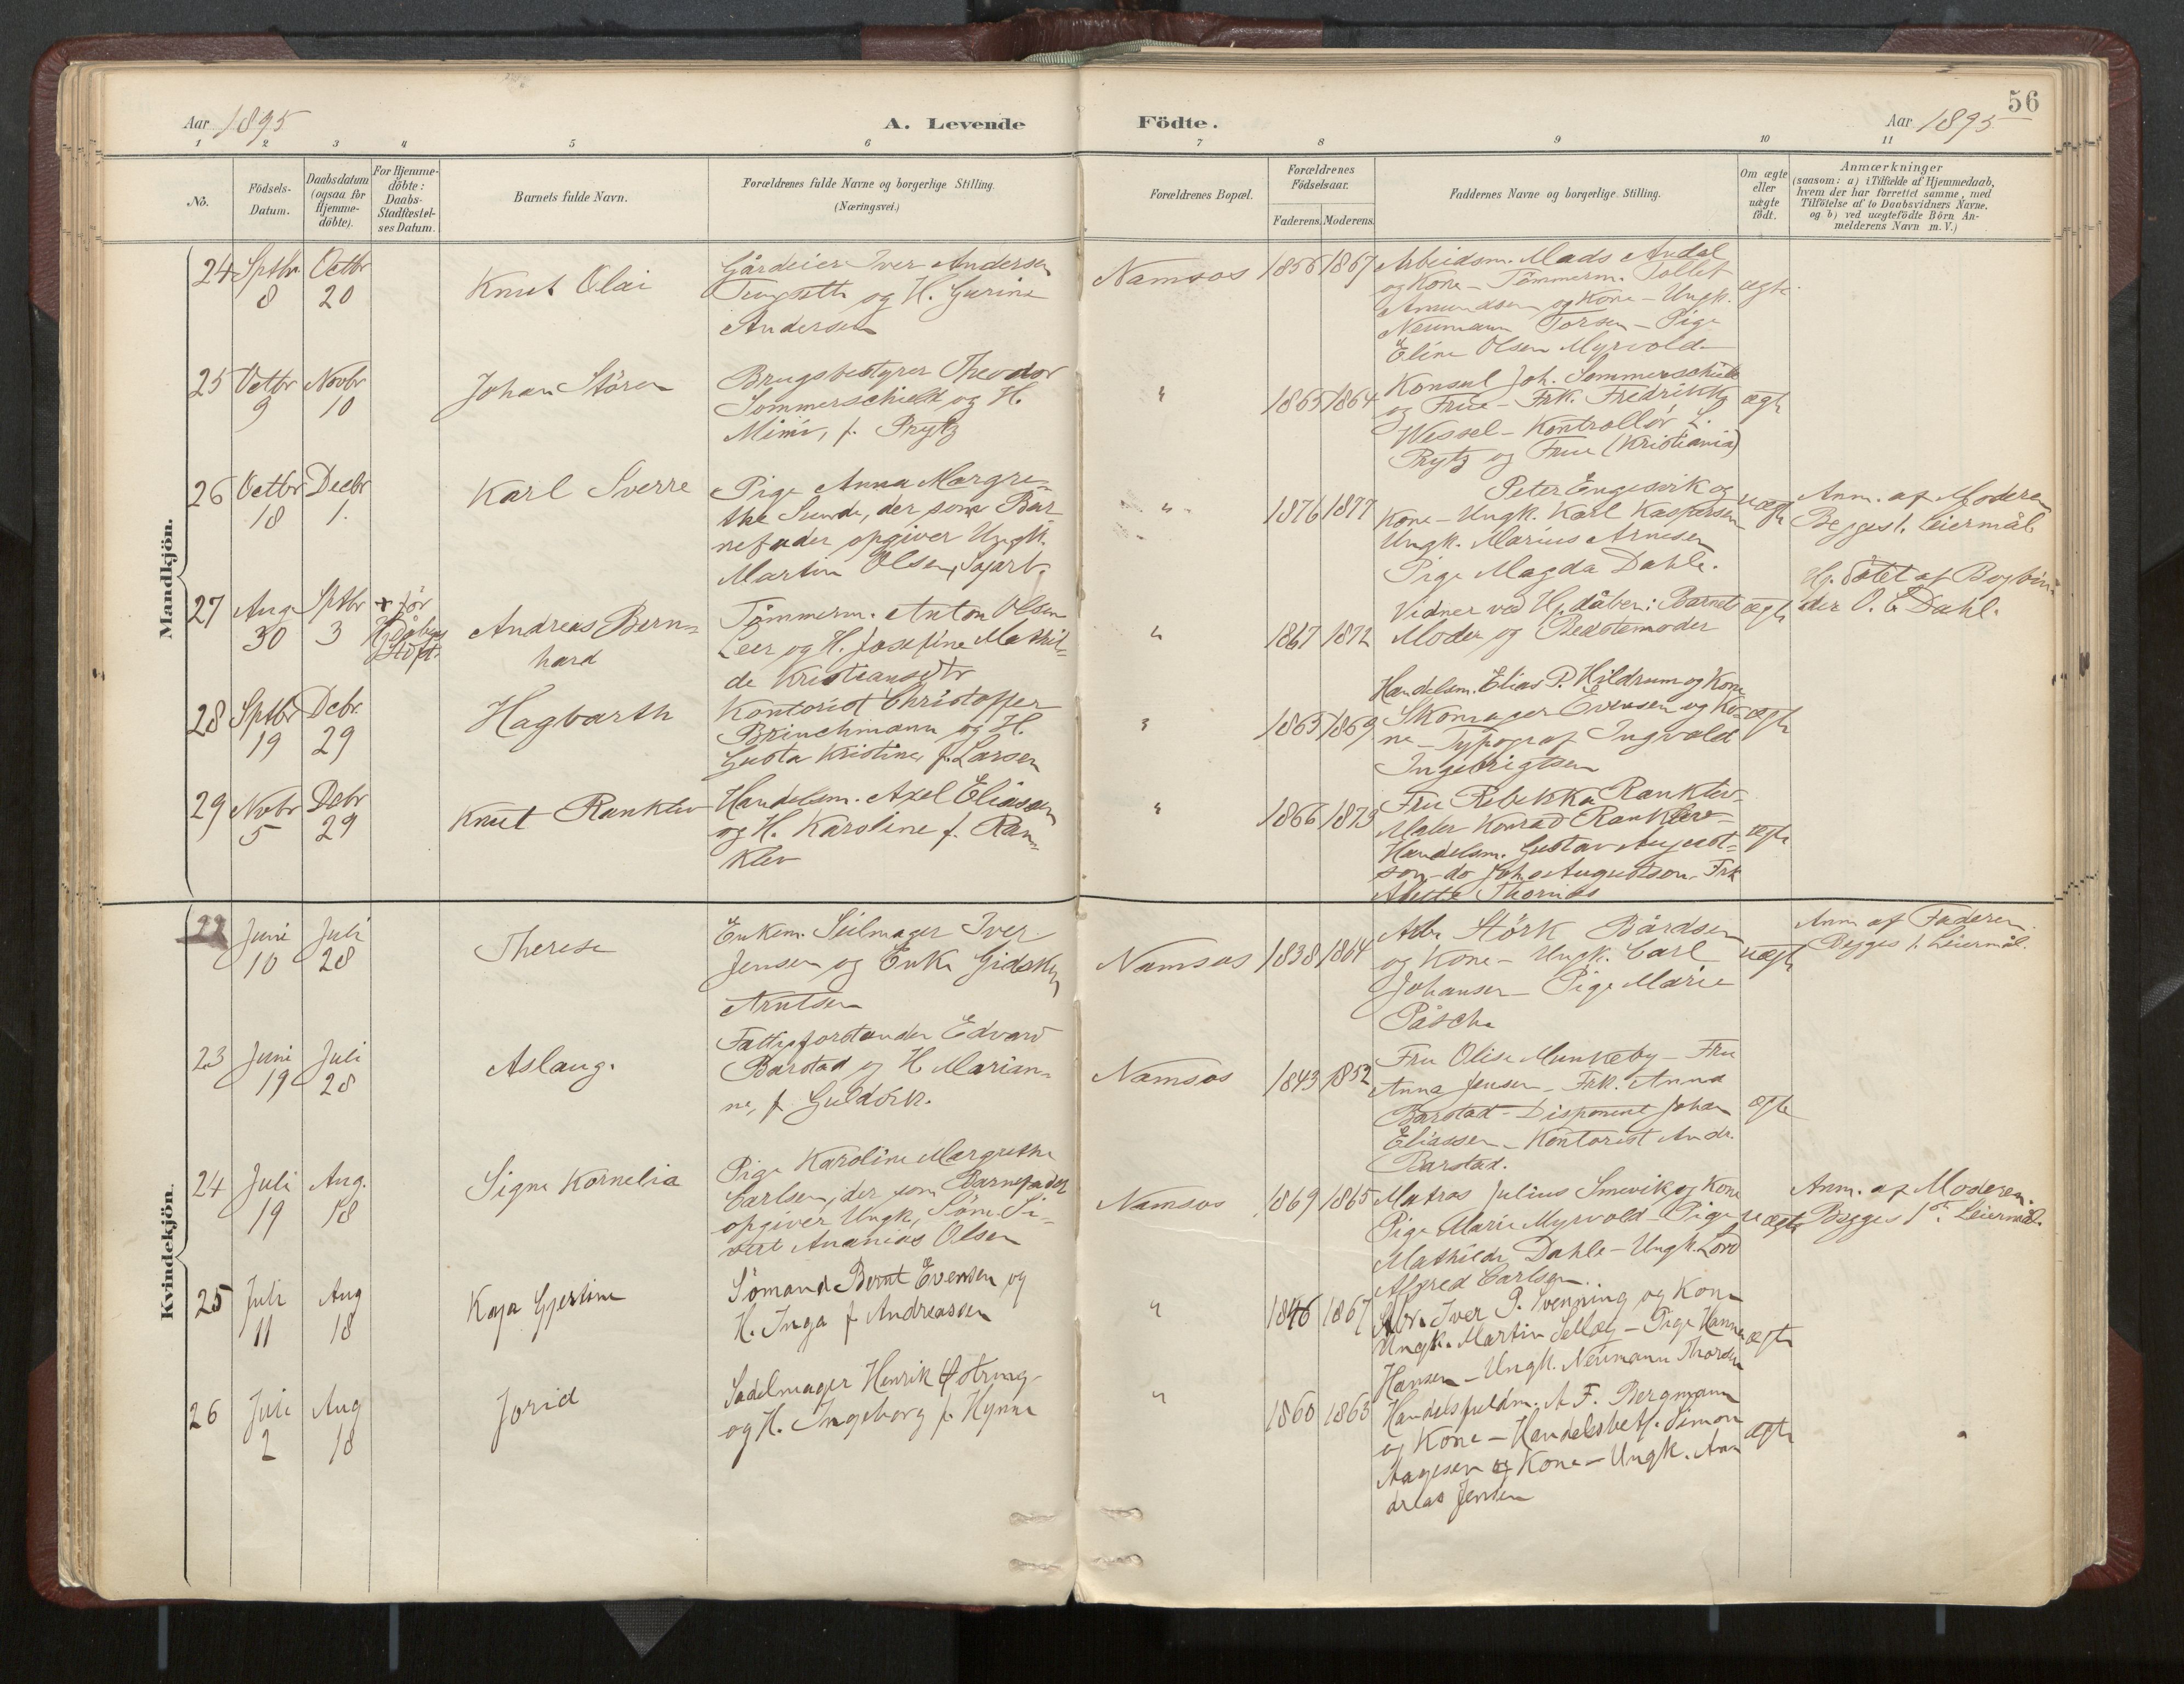 56
Aar 1895
A. Levende Födte.
Aar 1895
1 2 3 4 5 6 7 8 9 10 11
No.
Födsels-Datum.
Daabsdatum (ogsaa for Hjemme-döbte).
For Hjemme-döbte: Daabs-Stadfæstel-ses Datum.
Barnets fulde Navn.
Forældrenes fulde Navne og borgerlige Stilling.
(Næringsvei.)
Forældrenes Bopæl.
Forældrenes Födselsaar.
Faderens. Moderens.
Faddernes Navne og borgerlige Stilling.
Om ægte eller uægte födt.
Anmærkninger
(saasom: a) i Tilfælde af Hjemmedaab,
hvem der har forrettet samme, med
Tilföielse af to Daabsvidners Navne.
og b) ved uægtefödte Börn An-
melderens Navn m. V.)
Mandkjön.
24 Sptbr 8 Octbr 20
Knut Olai
Gårdeier Iver Andersen
og H. Gurine
Andersen
Namsos 1856 1867
Arbeidsm. Mads Andal
og Kone - Tömmerm. Tollef
Amundsen og Kone - Ungk.
Neumann Torsen - Pige
Eline Olsen Myrvold
ægte
25 Octbr 9 Novbr 10
Johan Stören
Brugsbestyrer Theodor
Sommerschield og H.
Mimi, f. Prytz
" 1865 1864
Konsul Joh. Sommerschield
og Frue - Frk. Fredrikke
Wessel - Kontrollör L.
Prytz og Frue (Kristiania)
ægte
26 Octbr 18 Decbr 1.
Karl Sverre
Pige Anna Margre-
the Sunde, der som Bar
nefader opgiver Ungk.
Martin Olsen, Sagarb.
" 1876 1877
Peter Engesvik og
Kone - Ungk. Karl Kaspersen
Ungk. Marius Arnesen
Pige Magda Dahle.
uægte
Anm. af Moderen
Begges 1. Leiermål
27 Aug. 30 Sptbr 3
+ för Dåbens Stadf.
Andreas Bern=
hard
Tömmerm. Anton Olsen
Leer og H. Josefine Mathil=
de Kristiansdtr
" 1867 1872
Vidner ved Hj. dåben: Barnets
Moder og Bedstemoder
ægte
Hj. döbt af Bogbin-
der O. E. Dahl.
28 Sptbr 19 Debr. 29
Hagbarth
Kontorist Christoffer
Brinchmann og H.
Gusta Kristine, f. Larsen
" 1865 1869
Handelsm. Elias P. Hildrum og Kone
Skomager Evensen og Ko-
ne - Typograf Ingvald
Ingebrigtsen
ægte
29 Novbr 5 Debr 29
Knut Ranklev
Handelsm. Axel Eliassen
og H. Karoline f. Ran=
klev
" 1866 1873
Fru Rebekka Ranklev-
Maler Konrad Ranklev-
Handelsm. Gustav August=
son - do Johs Augustson - Frk
Thornæs
ægte
Kvindekjön.
22 Juni 10 Juli 28
Therese
Enkem. Seilmager Iver
Jensen og Enke Gidsken
Arntsen
Namsos 1838 1864
Arb. Störk Bårdsen
og Kone - Ungk. Carl
Johansen - Pige Marie
Påsche
uægte
Anm. af Faderen.
Begges 1. Leiermål.
23 Juni 19 Juli 28
Aslaug.
Fattigforstander Edvard
Barstad og H. Marian=
ne, f. Guldvik.
Namsos 1843 1852
Fru Olise Munkeby - Fru
Anna Jensen - Frk. Anna
Barstad - Disponent Johan
Eliassen - Kontorist Andr.
Barstad.
ægte
24 Juli 19 Aug. 18
Signe Kornelia
Pige Karoline Margrethe
Carlsen, der som Barnefader
opgiver Ungk. Söm. Si-
vert Ananias Olsen
Namsos 1869 1865
Matros Julius Smevik og Kone
Pige Marie Myrvold - Pige
Mathilde Dahle - Ungk.
Alfred Carlsen
uægte
Anm. af Moderen.
Begges 1ste Leiermål.
25 Juli 11 Aug 18
Kaja Gjertine
Sömand Bernt Evensen og
H. Inga f. Andreassen
" 1846 1867
Arb. Iver P. Svenning og Kone
Ungk. Martin Sellæg - Pige Hanna
Hansen - Ungk. Neumann Thorsen
ægte
26 Juli 2 Aug 18
Jorid
Sadelmager Henrik Östring
og H. Ingeborg f. Hynne
" 1860 1863
Handelsfuldm. A F. Bergmann
og Kone - Handelsbetj. Simon
Aagesen og Kone - Ungk. An
dreas Jensen
ægte